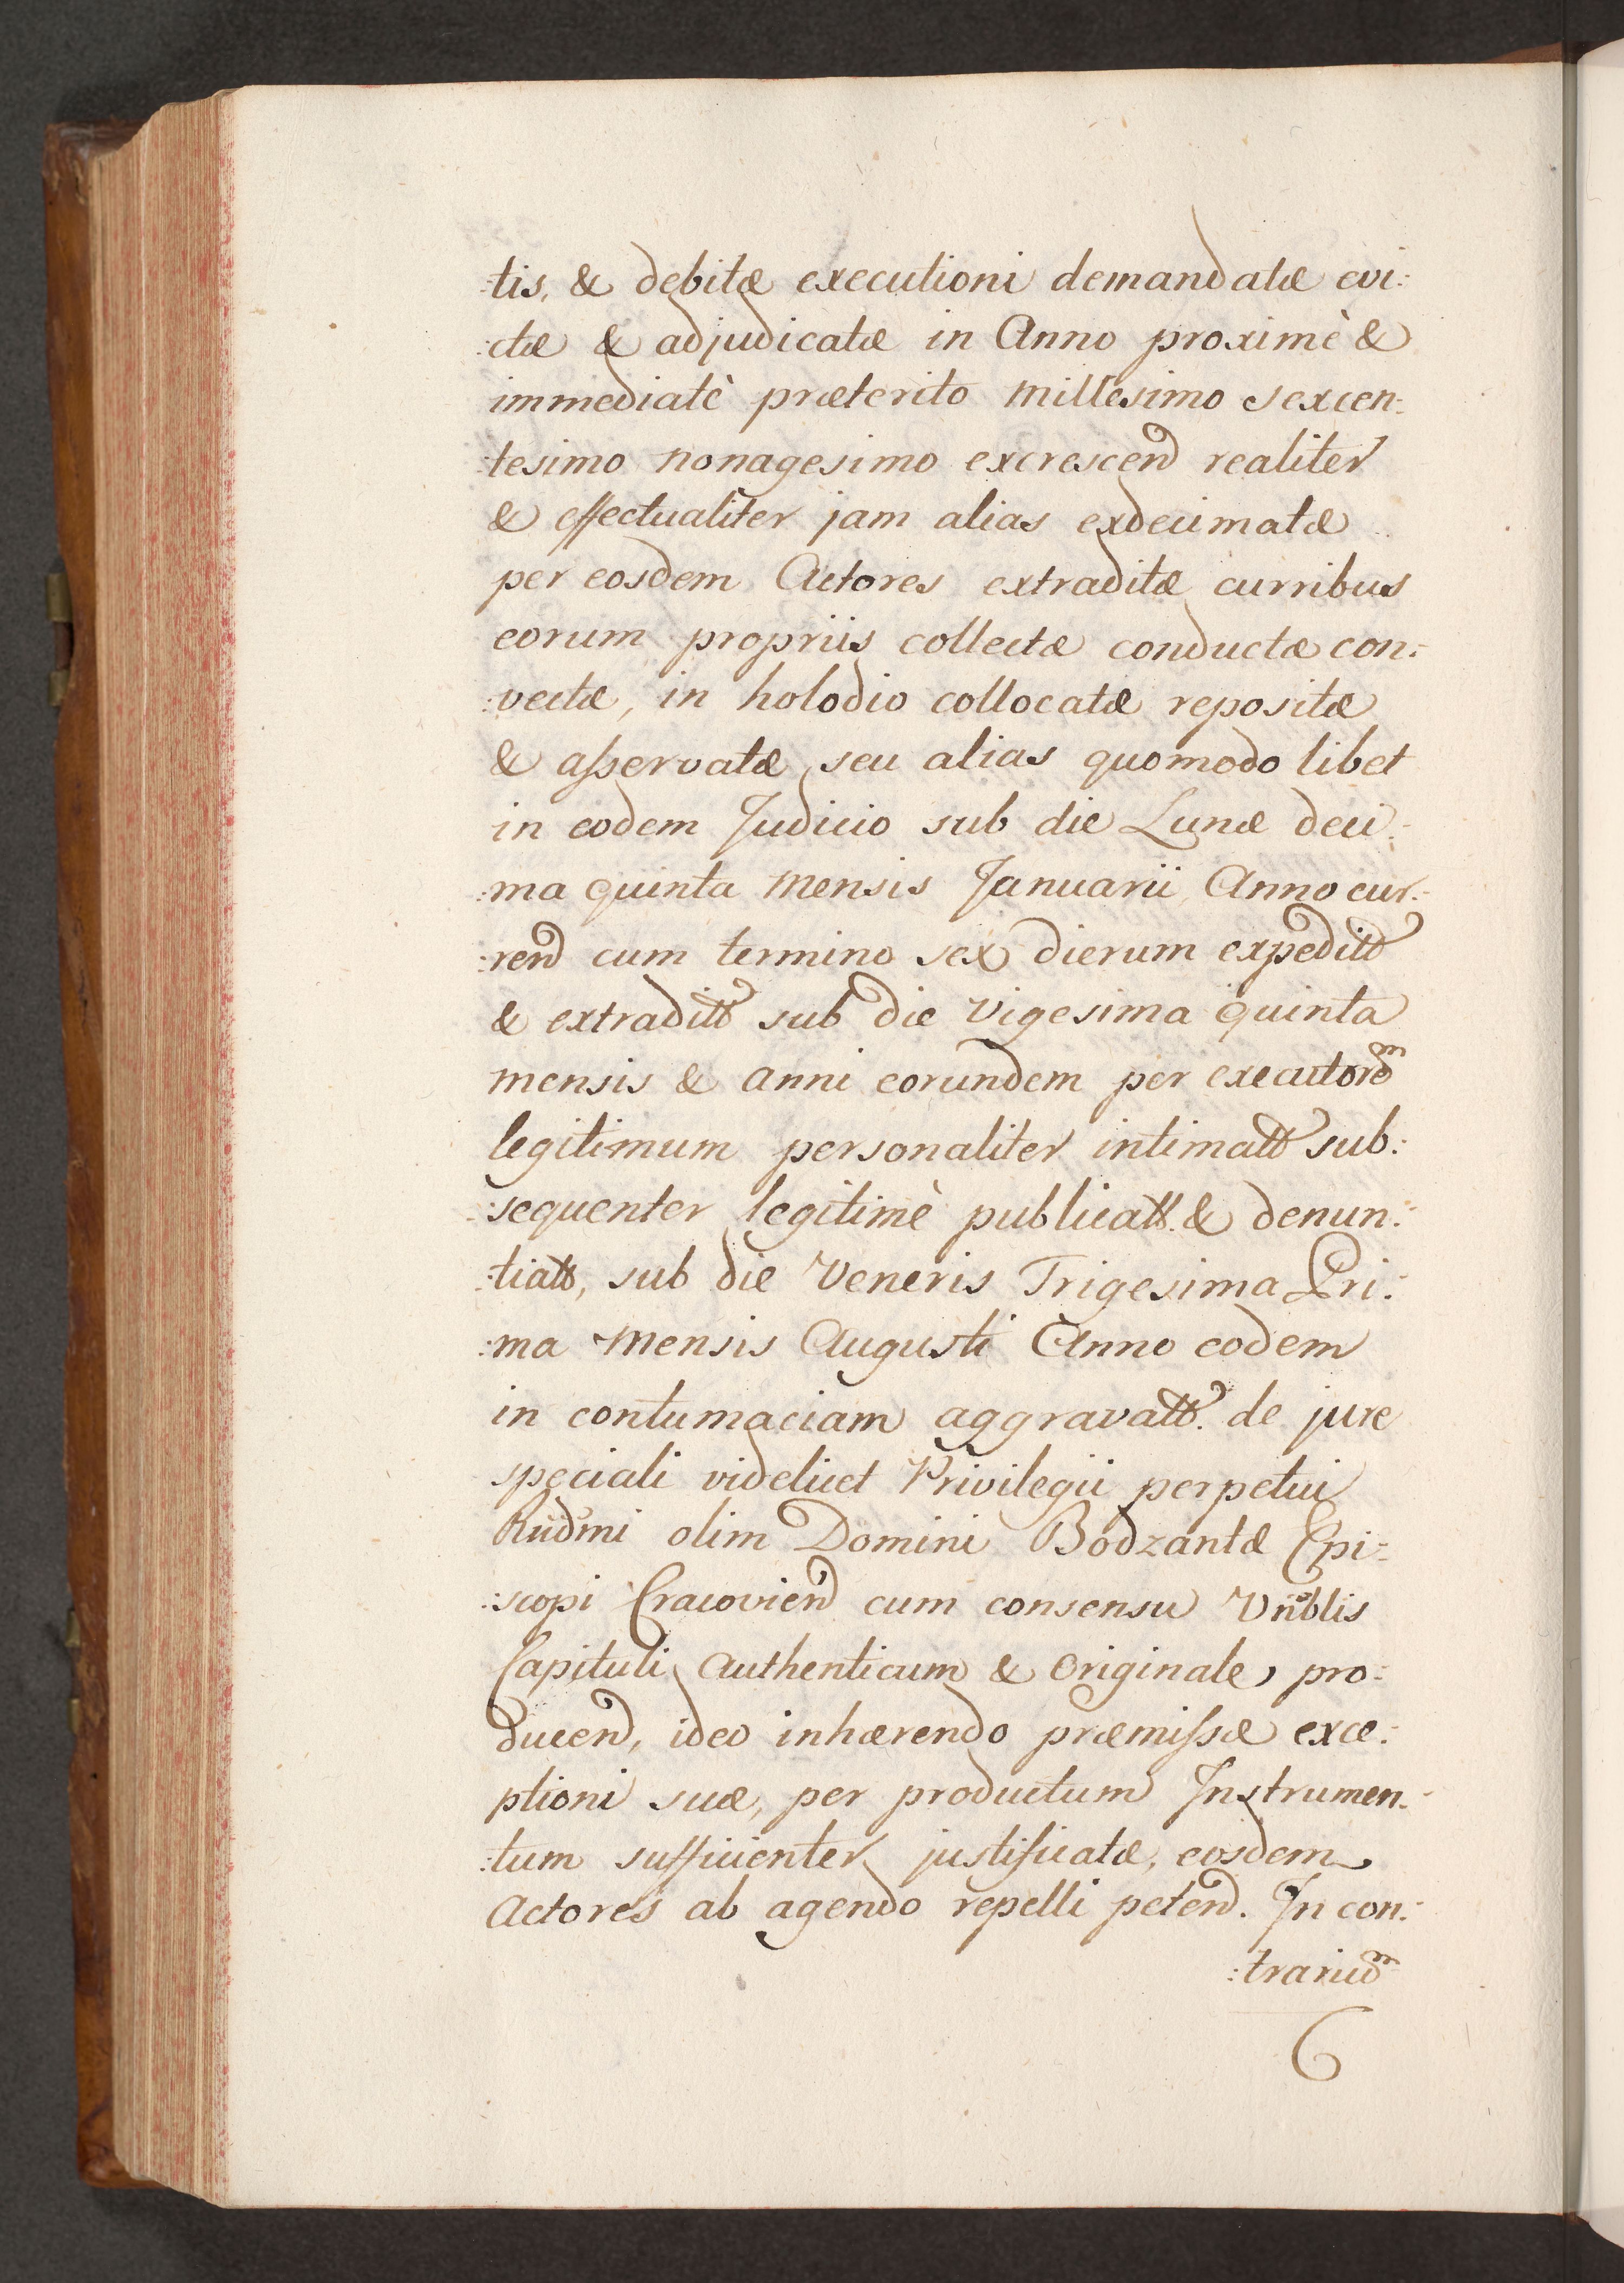 :tis, & debitæ executioni demandatæ evi:
:ctæ & adjudicatæ in Anno proximè &
immediatè præterito Millesimo sexcen:
:tesimo nonagesimo excrescend realiter
& effectualiter jam alias exdecimatæ
per eosdem Actores extraditæ curribus
eorum propriis collectæ conductæ con:
:vectæ, in holodio collocatæ repositæ
& asservatæ, seu alias quomodo libet
in eodem Judicio sub die Lunæ deci:
:ma quinta Mensis Januarii, Anno cur:
:rend cum termino sex dierum expeditt
& extraditt sub die Vigesima quinta
mensis & anni eorundem per executorem
legitimum personaliter intimatt sub:
:sequenter legitimè publicatt. & denun:
:tiatt, sub die Veneris Trigesima Pri:
:ma Mensis Augusti Anno eodem
in contumaciam aggravatt. de jure
speciali videlicet Privilegii perpetui
Rndmi olim Domini Bodzantæ Epi:
:scopi Cracoviend cum consensu Vnblis
Capituli, Authenticum & Originale, pro:
ducend, ideo inhærendo præmissæ exce:
ptioni suæ, per productum Instrumen:
:tum sufficienter justificatæ, eosdem
Actores ab agendo repelli petend. In con:
:trarium